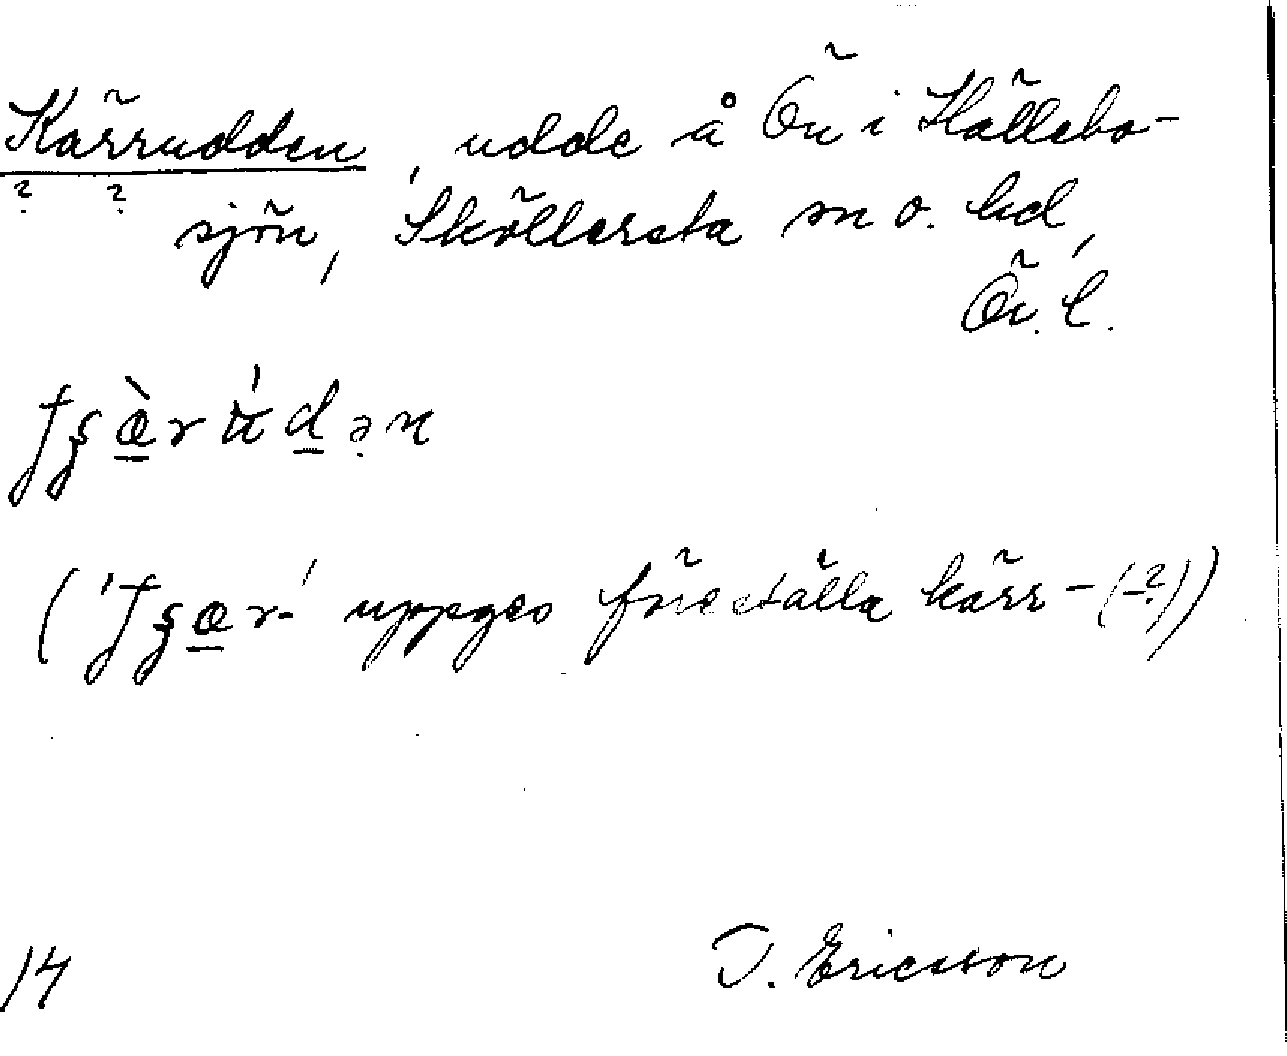 Kärrudden, udde å Ön i Hällebo-
? ?
sjön, Sköllersta sn o. hd,
Ör. l.
(' ' uppges föreställa kärr- (?))
14 T. Ericsson